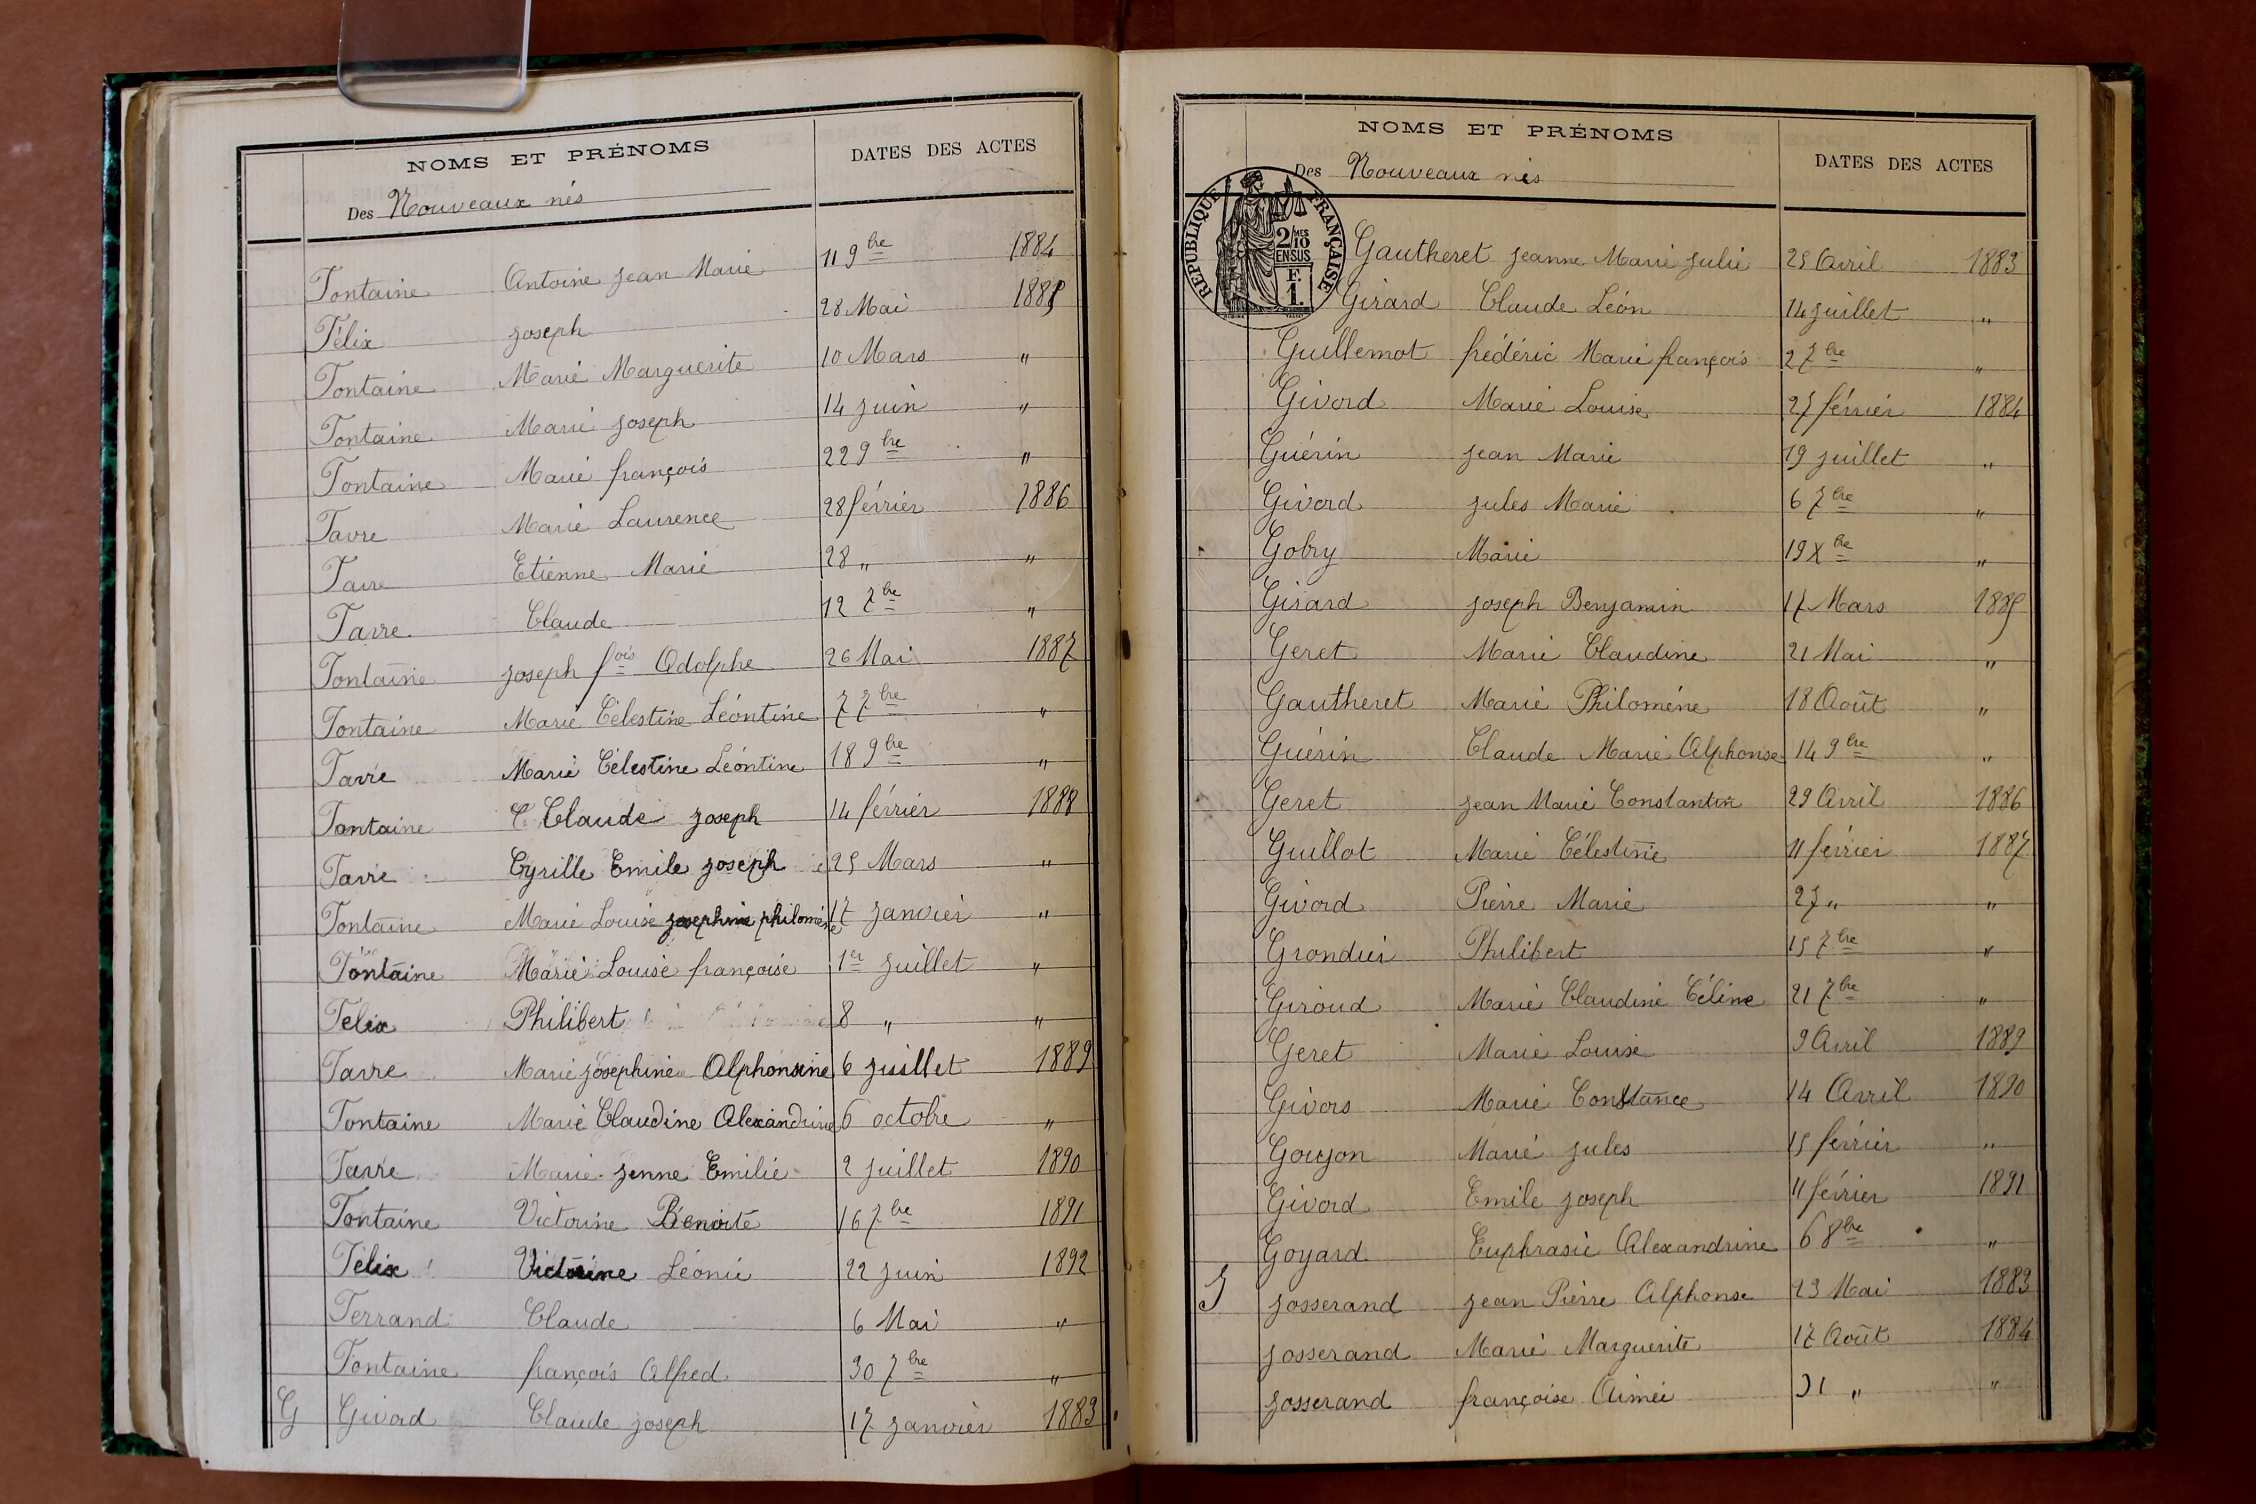 NOMS ET PRÉNOMS DATES DES ACTES
Des Nouveaux nés
Fontaine Antoine Jean Marie 11 9bre 1884
Félix Joseph 28 Mai 1885
Fontaine Marie Marguerite 10 Mars "
Fontaine Marie Joseph 14 juin "
Fontaine Marie françois 22 9bre "
Favre Marie Laurence 28 février 1886
Favre Etienne Marie 28 " "
Favre Claude 12 7bre "
Fontaine Joseph fois Adolphe 26 Mai 1887
Fontaine Marie Célestine Léontine 7 7bre "
Favre Marie Célestine Léontine 18 9bre "
Fontaine C. Claude Joseph 14 février 1888
Favre Cyrille Emile Joseph 25 Mars "
Fontaine Marie Louise Josephine philomène 17 Janvier "
Fontaine Marie Louise françoise 1er Juillet "
Félix Philibert 8 " "
Favre Marie Joséphine Alphonsine 6 juillet 1889
Fontaine Marie Claudine Alexandrine 6 octobre "
Favre Marie Jenne Emilie 2 juillet 1890
Fontaine Victorine Bénoite 16 7bre 1891
Félix Victorine Léonie 22 juin 1892
Ferrand Claude 6 Mai "
Fontaine françois Alfred 30 7bre "
G Givord Claude Joseph 17 Janvier 1883
NOMS ET PRÉNOMS DATES DES ACTES
Des Nouveaux nés
RÉPUBLIQUE FRANÇAISE
2/10 MES
EN SUS
F.
1.
Gautheret Jeanne Marie Julie 25 Avril 1883
Girard Claude Léon 14 Juillet "
Guillemot frédéric Marie françois 2 7bre "
Givord Marie Louise 27 février 1884
Guérin Jean Marie 19 juillet "
Givord Jules Marie 6 7bre "
Gobry Marie 19 Xbre "
Girard Joseph Benjamin 17 Mars 1885
Geret Marie Claudine 21 Mai "
Gautheret Marie Philomène 18 Août "
Guérin Claude Marie Alphonse 14 9bre "
Geret Jean Marie Constantin 29 Avril 1886
Guillot Marie Célestine 11 février 1887
Givord Pierre Marie 27 " "
Grondier Philibert 15 7bre "
Giroud Marie Claudine Céline 21 7bre "
Geret Marie Louise 9 Avril 1889
Givors Marie Constance 14 Avril 1890
Goujon Marie Jules 15 février "
Givord Emile Joseph 11 février 1891
Goyard Euphrasie Alexandrine 6 8bre "
J Josserand Jean Pierre Alphonse 23 Mai 1883
Josserand Marie Marguerite 17 Août 1884
Josserand françoise Aimée 31 " "